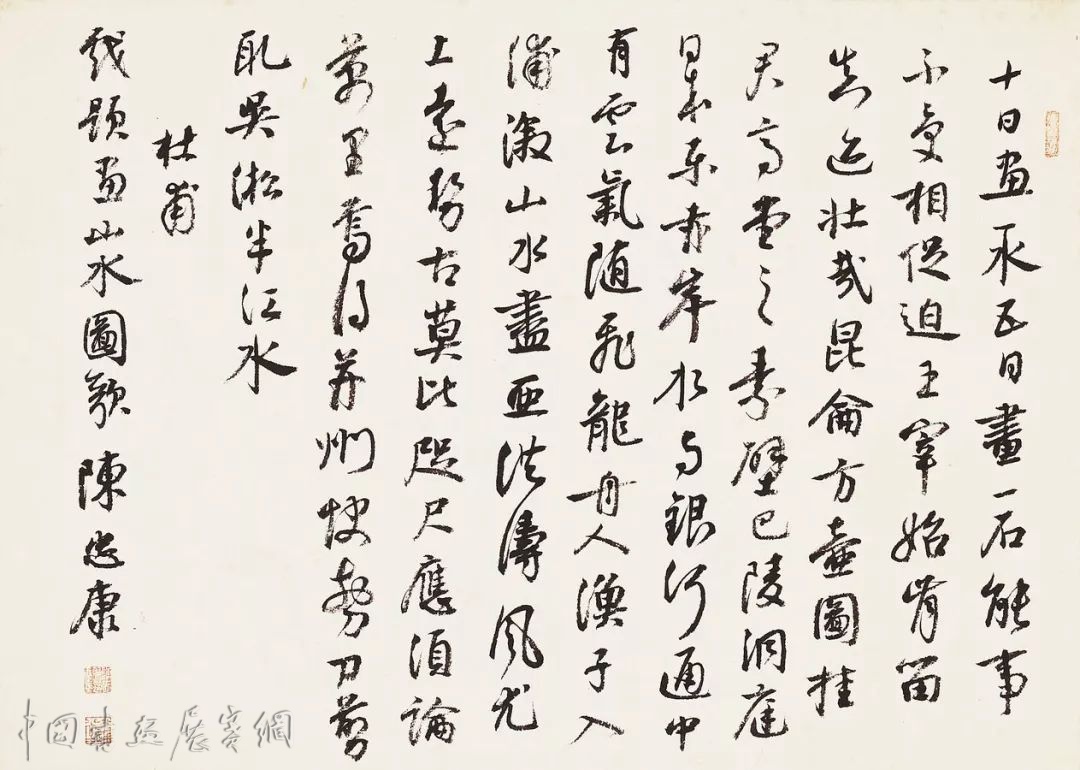 十日畫一水五日畫一石能事
不受相促迫王宰始肯留
真迹壯哉昆侖方壺圖挂
君高堂之素壁巴陵洞庭
日本東赤岸水与銀河通中
有雲氣随飛龍舟人漁子入
浦溆山水盡亞洪濤風尤
工遠勢古莫比咫尺應須論
萬里焉得并州快剪刀剪
取吳淞半江水
杜甫
戲題畫山水圖歌 陳忠康
中國書法展賽網